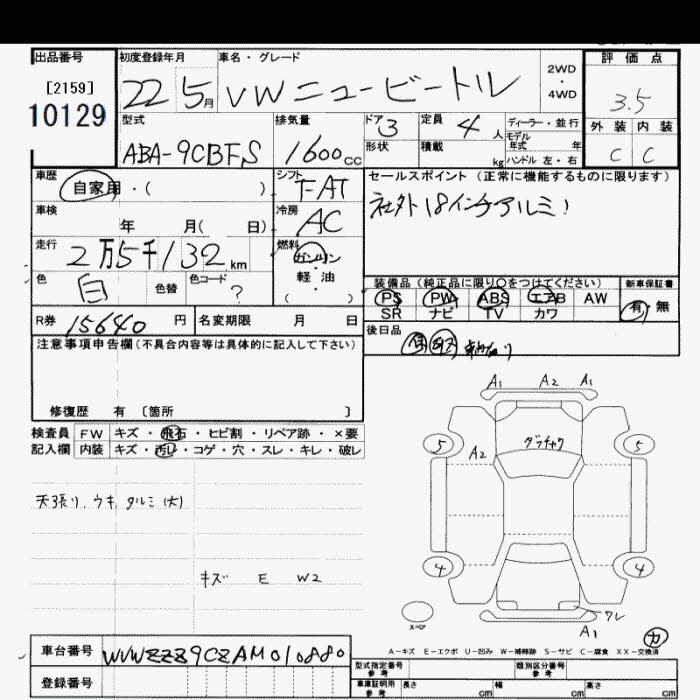 出品番号 初度登録年月 車名・グレード 評価点
[2159]
10129
22 5月 VW ニュービートル
2WD
・
4WD
3.5
型式 排気量 ドア 3 定員 4人 ディーラー・並行
モデル
年式 年
外装 内装
ABA-9CBFS 1600cc 形状 積載 kg ハンドル 左・右
C C
車歴 自家用・( ) シフト FAT
セールスポイント(正常に機能するものに限ります)
社外18インチアルミ!
車検 年 月( 日) 冷房 AC
走行 2万5千132km 燃料 ガソリン
軽・油
( )
色 白 色替 色コード ?
装備品(純正品に限り○をつけてください) 新車保証書
PS PW ABS エアB AW 有・無
SR ナビ TV カワ
R券 15640円 名変期限 月 日
後日品
注意事項申告欄(不具合内容等は具体的に記入して下さい)
修復歴 有 〔箇所 〕
検査員 FW キズ・飛石・ヒビ割・リペア跡・×要
記入欄 内装 キズ・汚レ・コゲ・穴・スレ・キレ・破レ
天張り、ウキ、タルミ(大)
キズ E W2
A1 A2 A1
5 A2 ダラチャク 5
4 4
スペア
ワレ
A1
カ
A-キズ E-エクボ U-凹み W-補修跡 S-サビ C-腐食 XX-交換済
車台番号 WVWZZZ9CZAM010880
登録番号
型式指定番号
参考
類別区分番号
参考
車庫証明用
参考
長さ cm 幅 cm 高さ cm